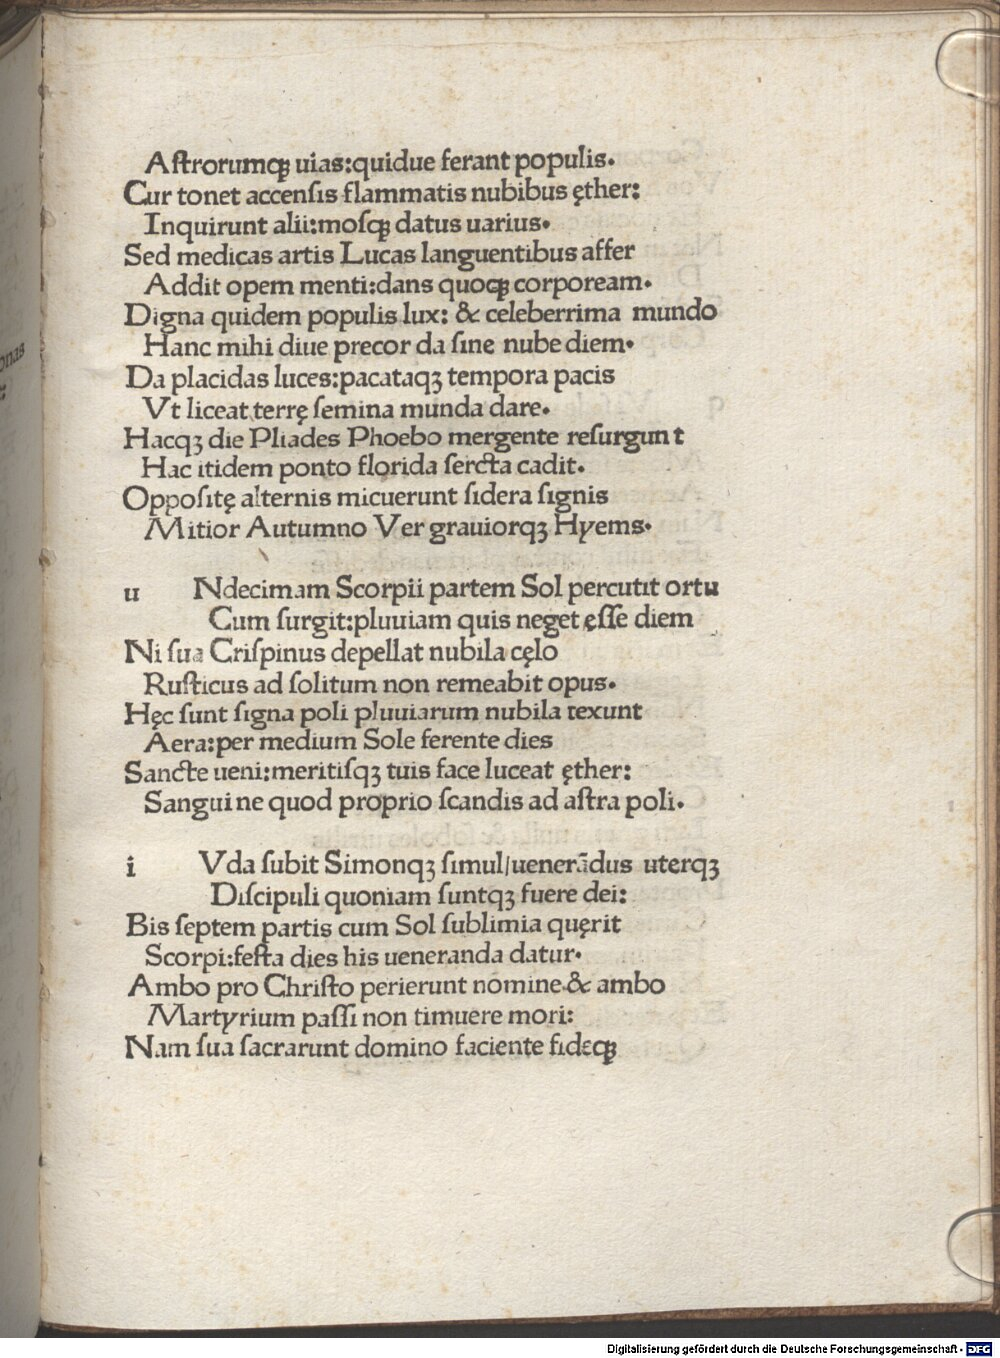 Aſtrorumqꝫ uias:quidue ferant populis.
Cur tonet accenſis flammatis nubibus ęther:
Inquirunt alii:moſqꝫ datus uarius.
Sed medicas artis Lucas languentibus affer
Addit opem menti:dans quoqꝫ corpoream.
Digna quidem populis lux: & celeberrima mundo
Hanc mihi diue precor da ſine nube diem.
Da placidas luces:pacataqꝫ tempora pacis
Vt liceat terrę ſemina munda dare.
Hacqꝫ die Pliades Phoebo mergente reſurgunt
Hac itidem ponto florida ſercta cadit.
Oppoſitę alternis micuerunt ſidera ſignis
Mitior Autumno Ver grauiorqꝫ Hyems.
u Ndecimam Scorpii partem Sol percutit ortu
Cum ſurgit:pluuiam quis neget ęſſe diem
Ni ſua Criſpinus depellat nubila cęlo
Ruſticus ad ſolitum non remeabit opus.
Hęc ſunt ſigna poli pluuiarum nubila texunt
Aera:per medium Sole ferente dies
Sancte ueni:meritiſqꝫ tuis face luceat ęther:
Sanguine quod proprio ſcandis ad aſtra poli.
i Vda ſubit Simonqꝫ ſimul/uenerādus uterqꝫ
Diſcipuli quoniam ſuntqꝫ fuere dei:
Bis ſeptem partis cum Sol ſublimia quęrit
Scorpi:feſta dies his ueneranda datur.
Ambo pro Chriſto perierunt nomine & ambo
Martyrium paſſi non timuere mori:
Nam ſua ſacrarunt domino faciente fideqꝫ
Digitalisierung gefördert durch die Deutsche Forschungsgemeinschaft - DFG